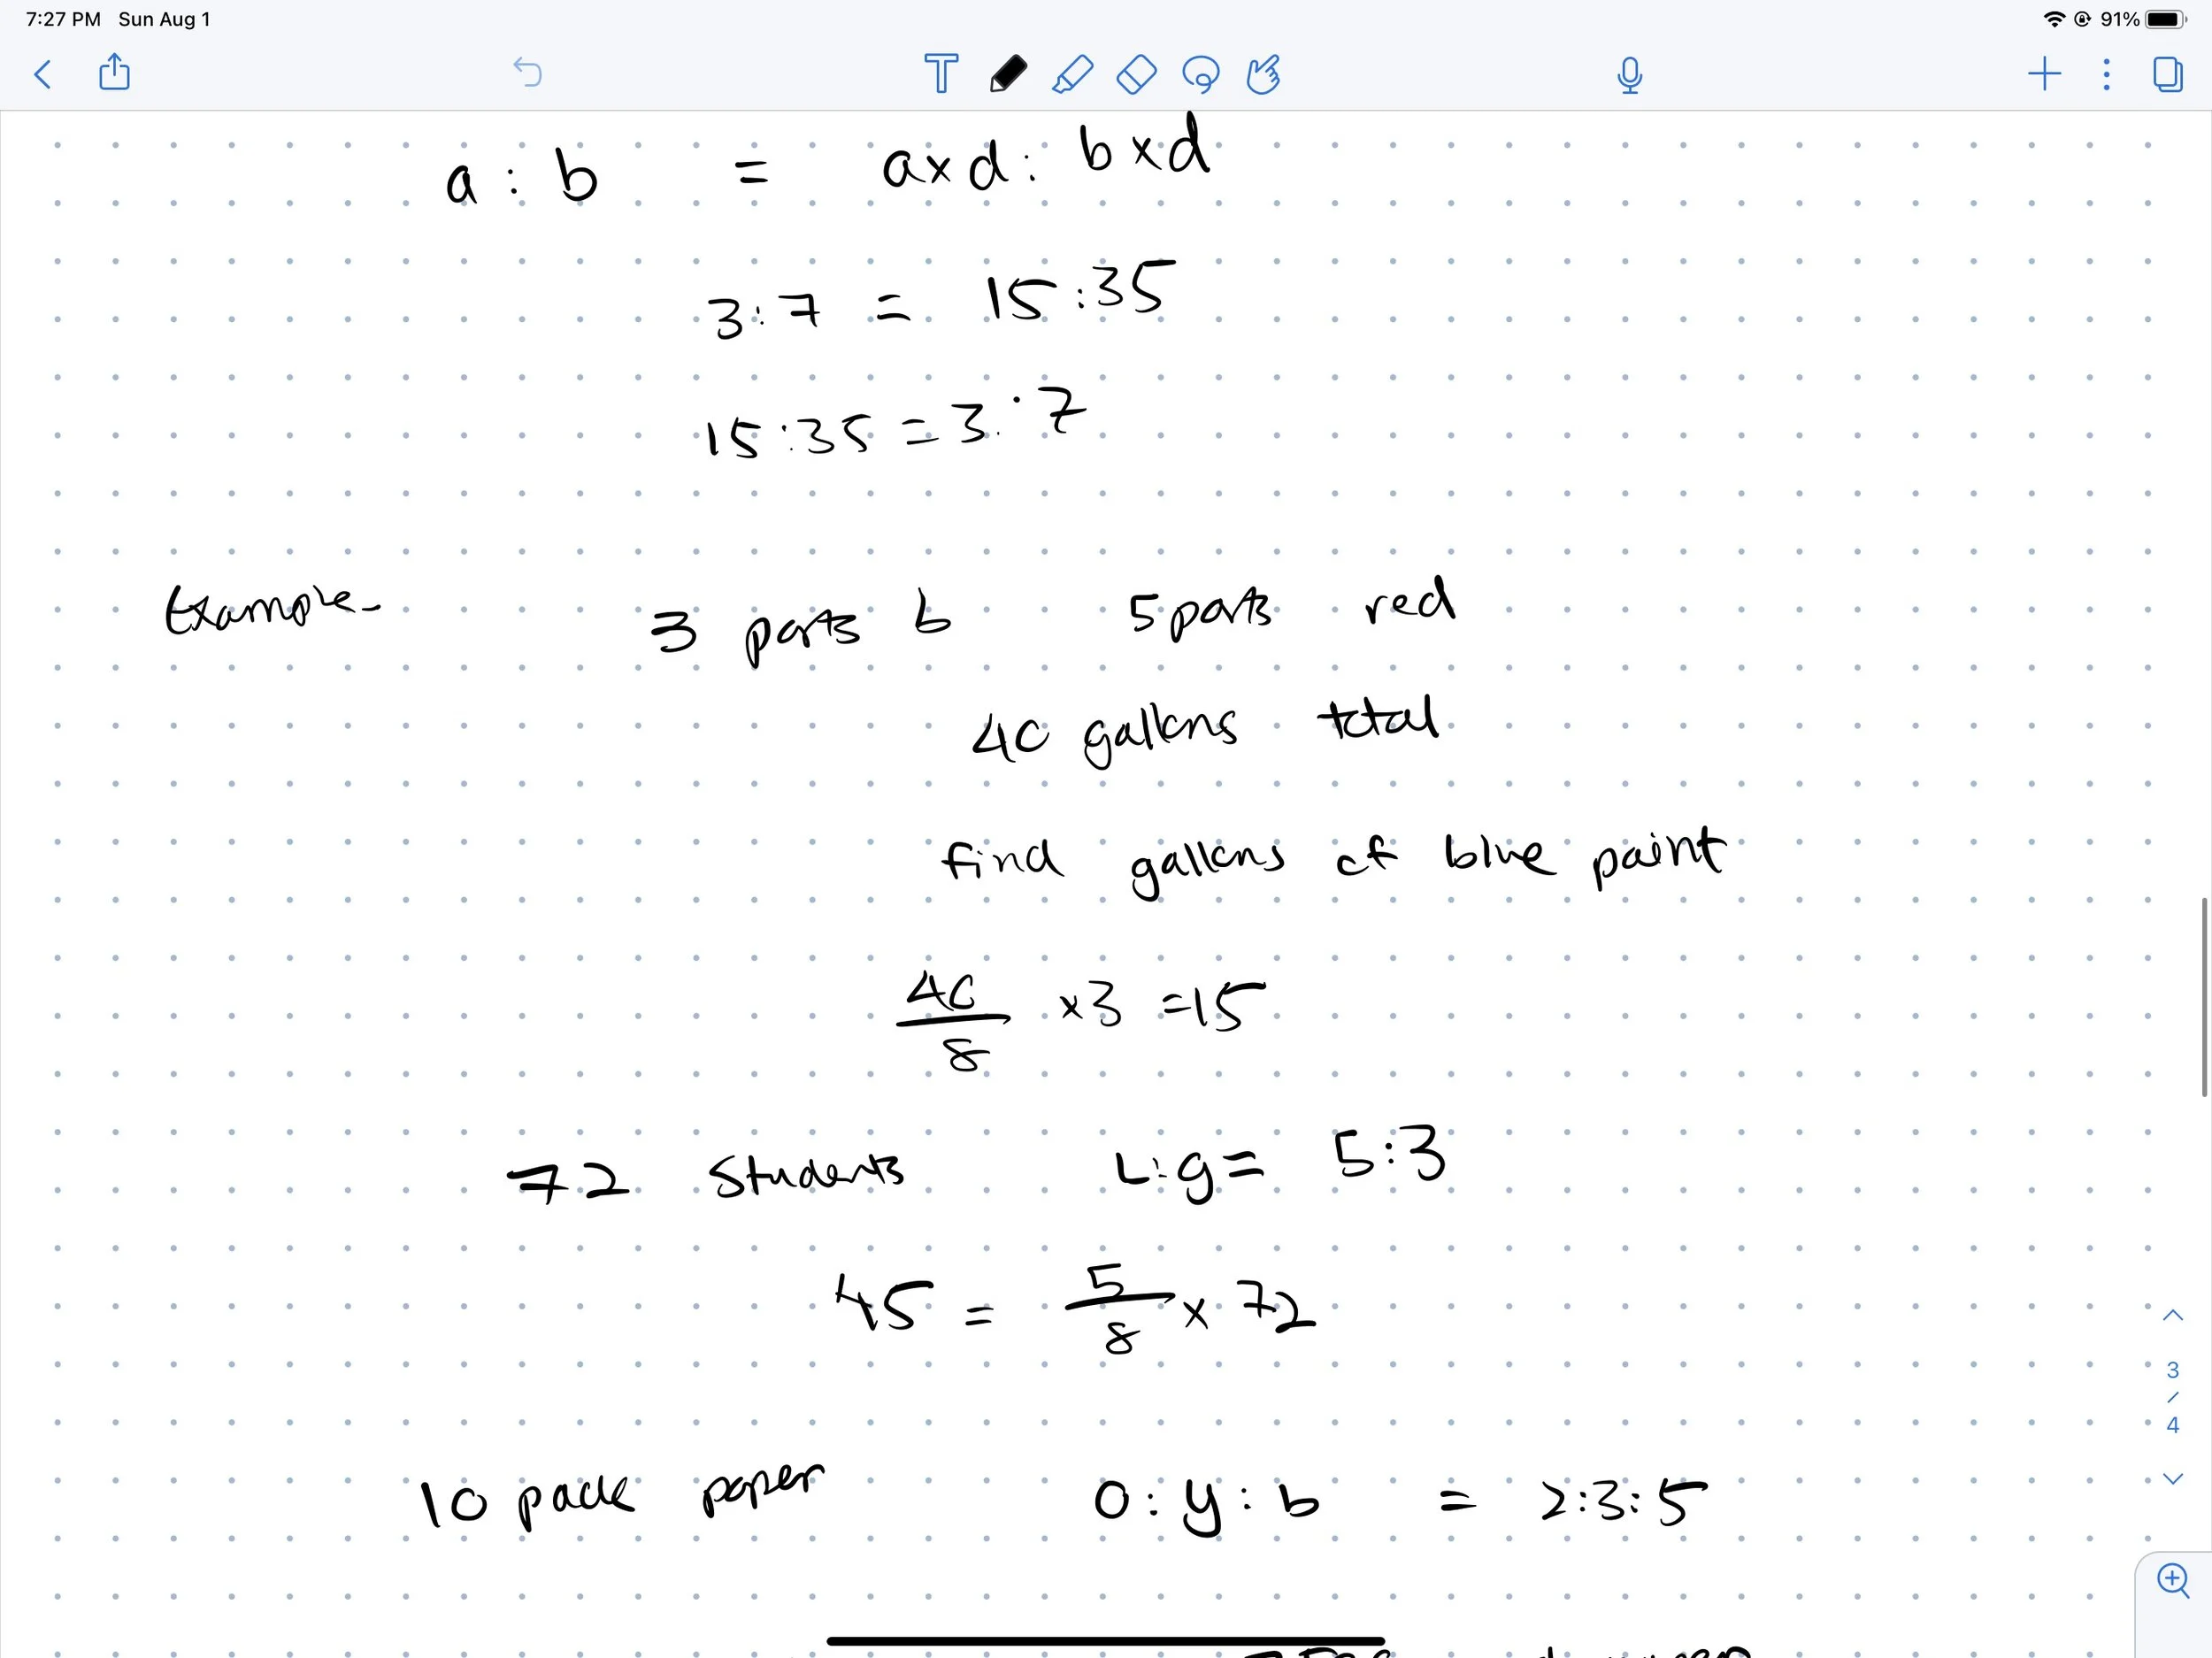 7:27 PM Sun Aug 1 91%
T
a : b = a x d : b x d
3 : 7 = 15 : 35
15 : 35 = 3 : 7
Example - 3 parts b 5 parts red
40 gallons total
find gallons of blue paint
40/8 x 3 = 15
72 students b : g = 5 : 3
45 = 5/8 x 72
3
/
4
10 pack paper O : y : b = 2 : 3 : 5